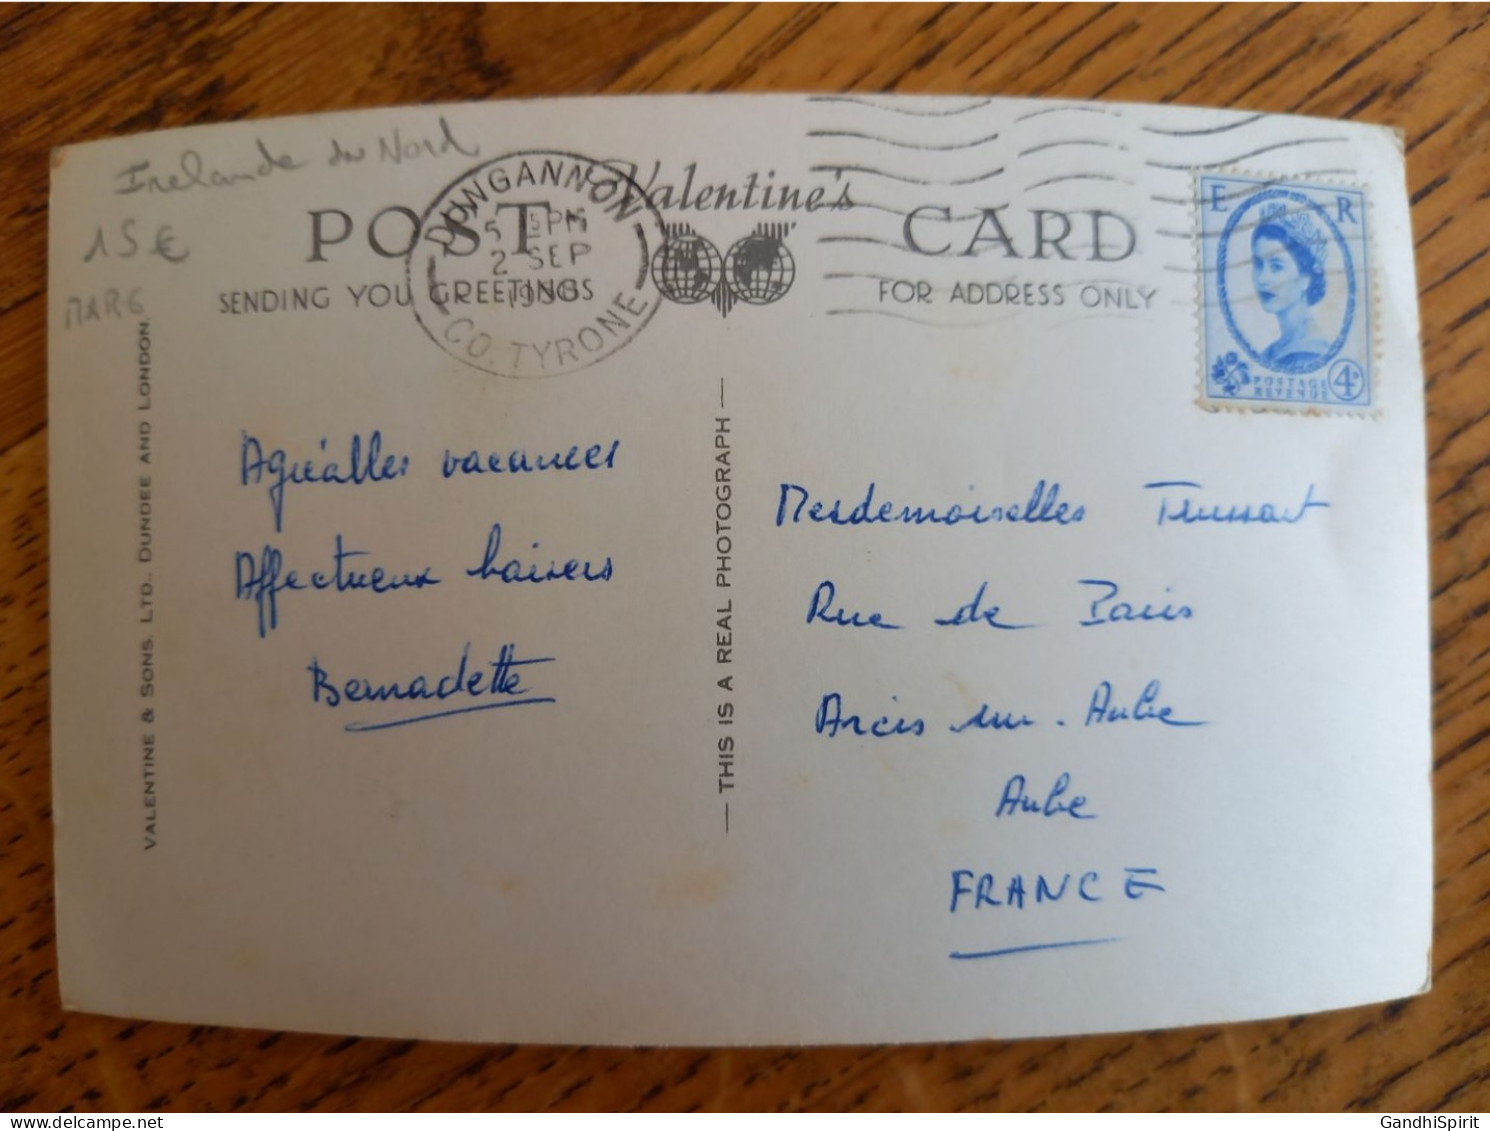 Irelande du Nord
15 €
MARG
Valentine's
POST CARD
SENDING YOU GREETINGS
FOR ADDRESS ONLY
DUNGANNON
2 SEP
CO. TYRONE
E R
POSTAGE
REVENUE
4D
VALENTINE & SONS. LTD., DUNDEE AND LONDON.
THIS IS A REAL PHOTOGRAPH
Agréables vacances
Affectueux baisers
Bernadette
Mesdemoiselles Trussart
Rue de Paris
Arcis sur-Aube
Aube
FRANCE
GandhiSpirit